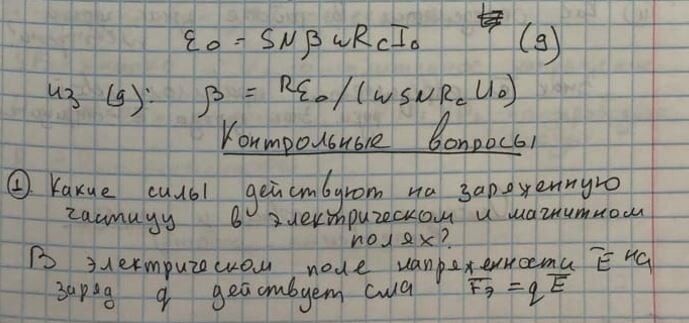 ε₀ = SNβωR_cI₀ (9)
из (9): β = Rε₀/(ωSNR_cU₀)
Контрольные вопросы
① Какие силы действуют на заряженную
частицу в электрическом и магнитном
полях?
В электрическом поле напряженности E̅ на
заряд q действует сила F̅э = qE̅